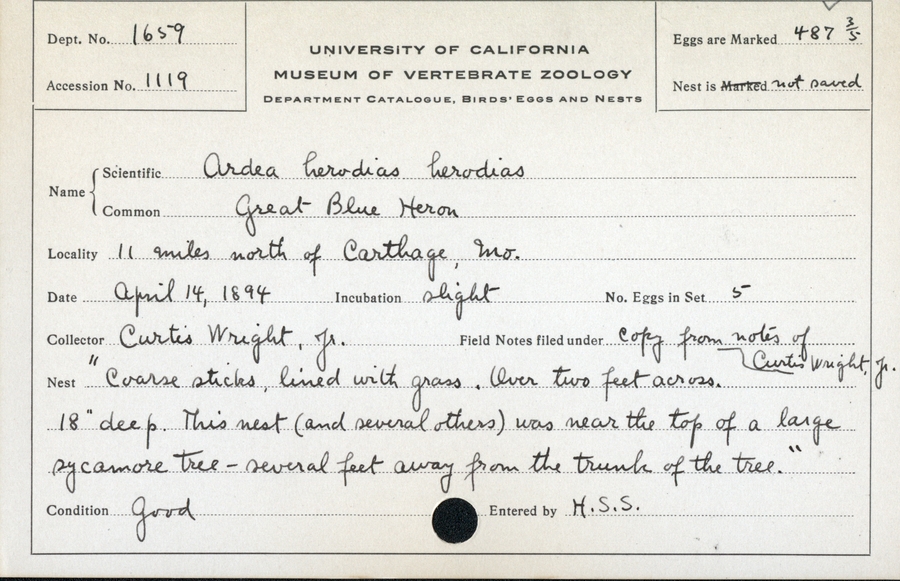 Dept. No. 1659
Accession No. 1119
UNIVERSITY OF CALIFORNIA
MUSEUM OF VERTEBRATE ZOOLOGY
DEPARTMENT CATALOGUE, BIRDS' EGGS AND NESTS
Eggs are Marked 487 3/5
Nest is Marked not saved
Name
Scientific Ardea herodias herodias
Common Great Blue Heron
Locality 11 miles north of Carthage, Mo.
Date April 14, 1894 Incubation slight No. Eggs in Set 5
Collector Curtis Wright, Jr. Field Notes filed under copy from notes of
Curtis Wright, Jr.
Nest "Coarse sticks, lined with grass. Over two feet across.
18" deep. This nest (and several others) was near the top of a large
sycamore tree - several feet away from the trunk of the tree."
Condition Good Entered by H.S.S.